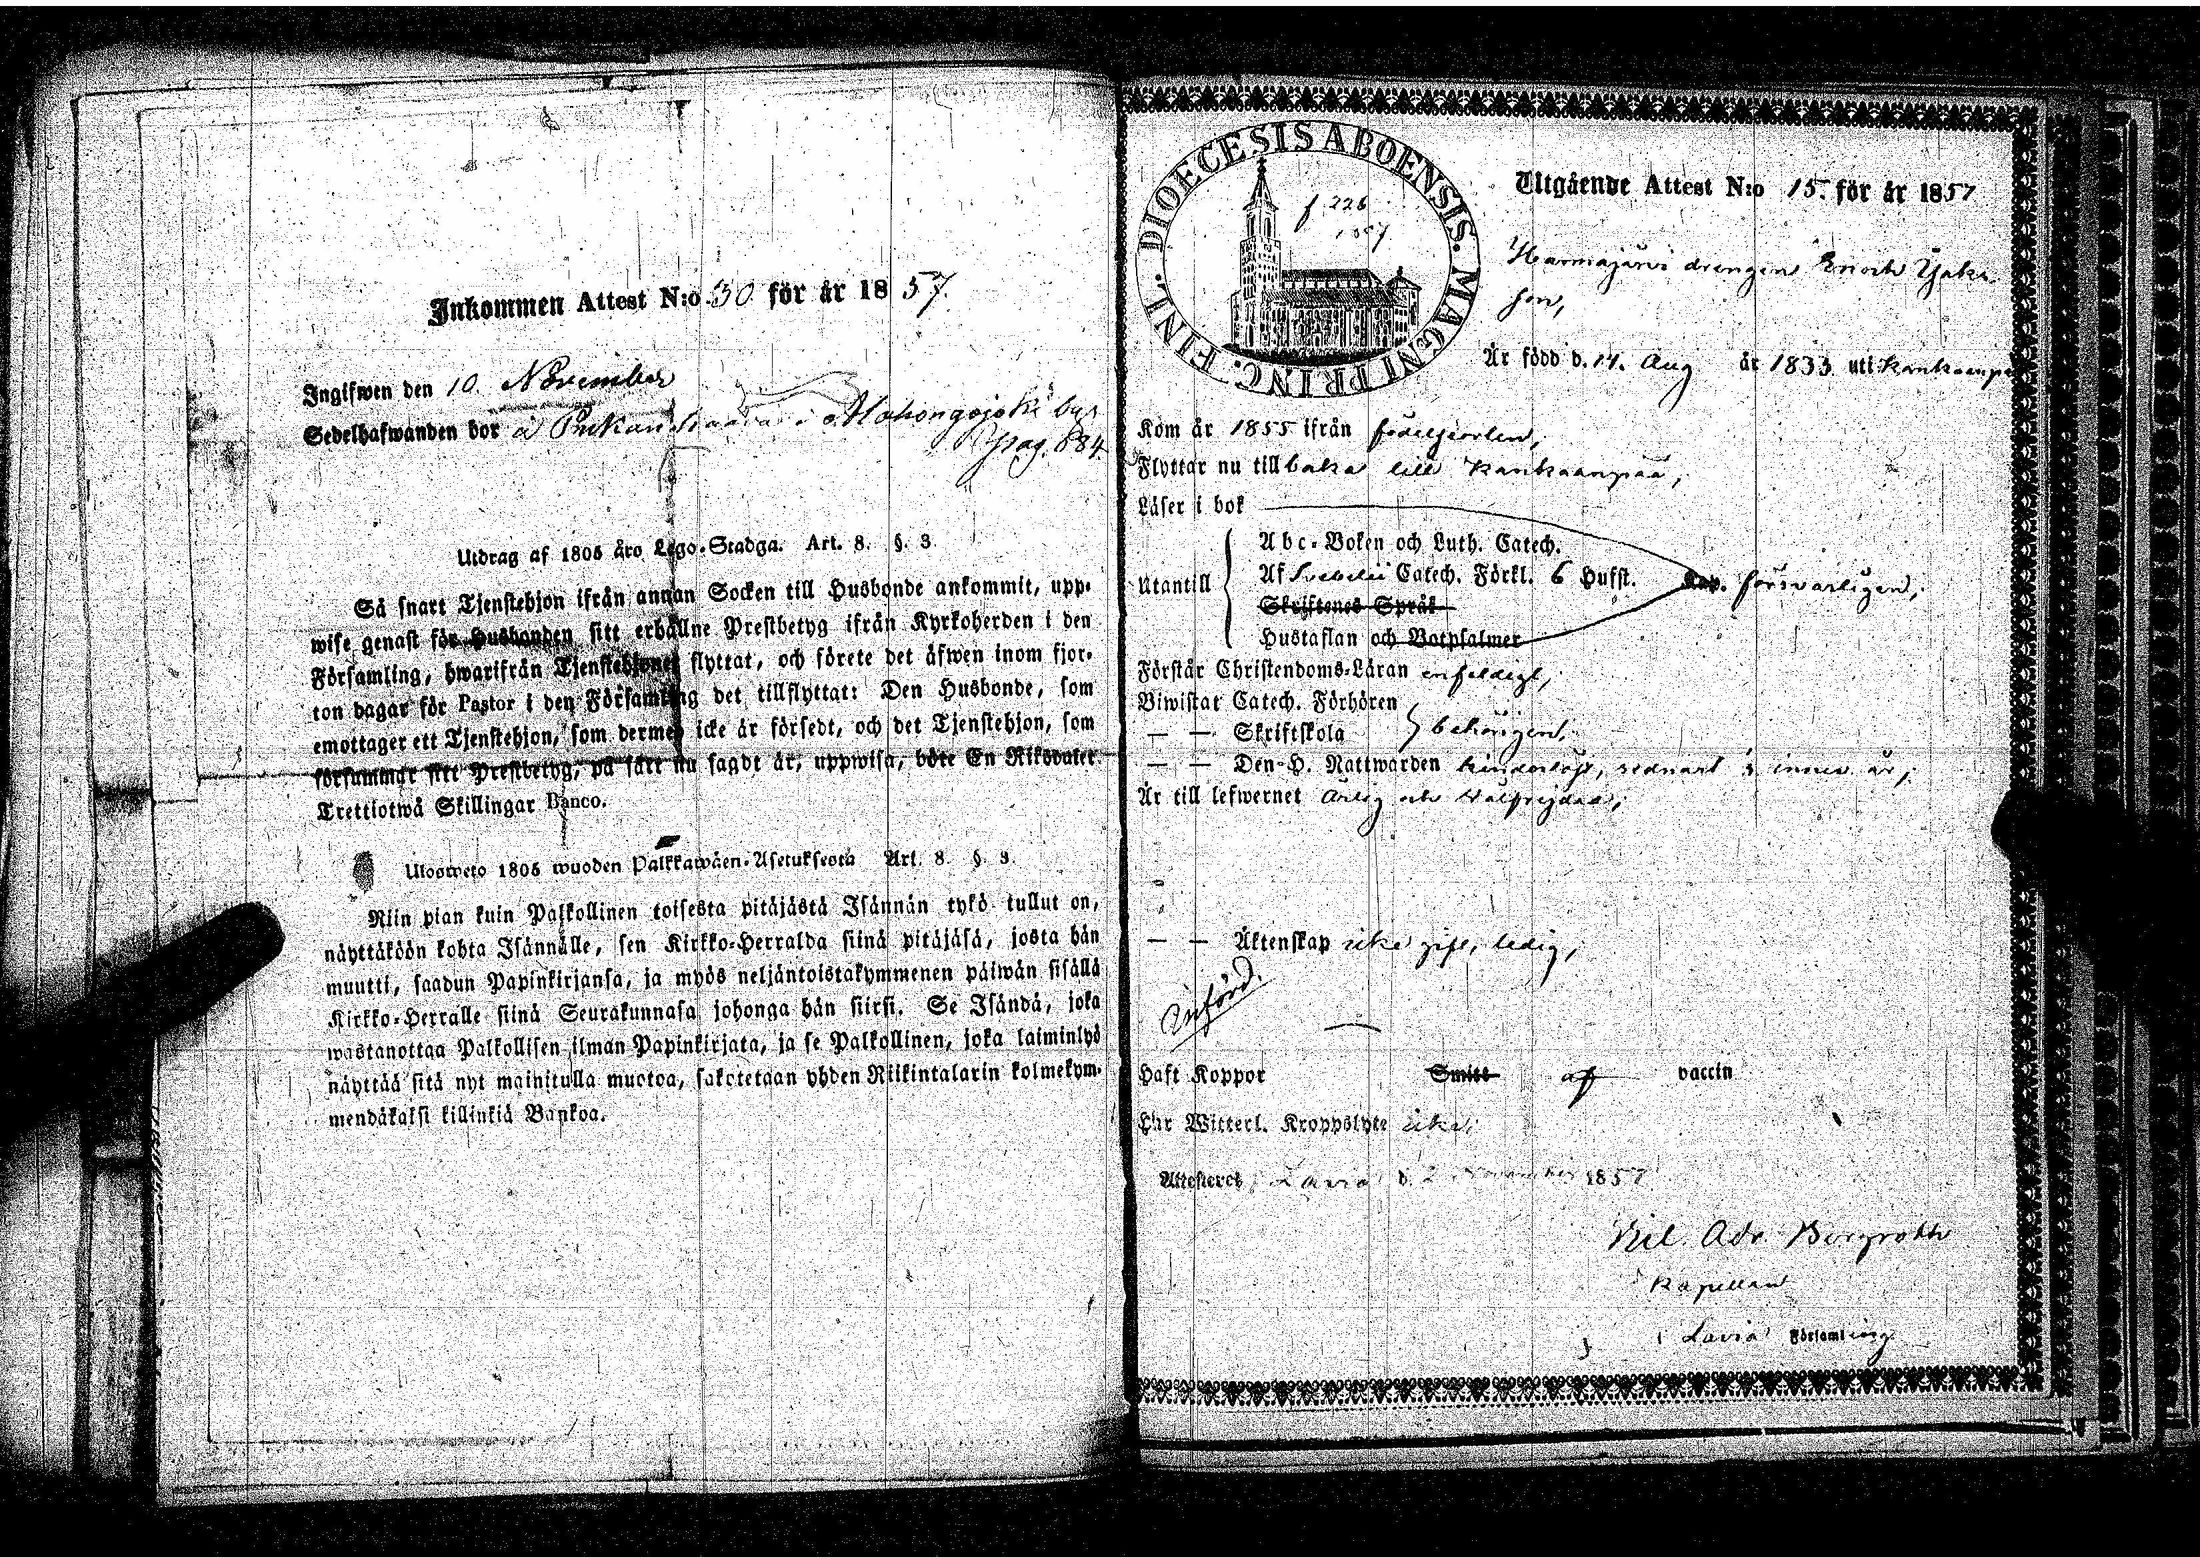 Inkommen Attest N:o 30 för år 1857.
Ingifwen den 10. November
Sedelhafwanden bor å i by
pag. 684
Utdrag af 1805 års Lego-Stadga. Art. 8. §. 3
Så snart Tjenstehjon ifrån annan Socken till Husbonde ankommit, upp-
wise genast för Husbonden sitt erhållne Prestbetyg ifrån Kyrkoherden i den
Församling, hwarifrån Tjenstehjonet flyttat, och förete det äfwen inom fjor-
ton dagar för Pastor i den Församling det tillflyttat: Den Husbonde, som
emottager ett Tjenstehjon, som dermed icke är försedt, och det Tjenstehjon, som
försummar sitt Prestbetyg, på sätt nu sagdt är, uppwisa, böte En Riksdaler
Trettiotwå Skillingar Banco.
Ulosweto 1805 wuoden Palkkawäen-Asetuksesta Art. 8. §. 3.
Niin pian kuin Palkollinen toisesta pitäjästä Isännän tykö tullut on,
näyttäköön kohta Isännälle, sen Kirkko-Herralda siinä pitäjäsä, josta hän
muutti, saadun Papinkirjansa, ja myös neljäntoistakymmenen päiwän sisällä
Kirkko-Herralle siinä Seurakunnasa johonga hän siirsi. Se Isändä, joka
wastanottaa Palkollisen ilman Papinkirjata, ja se Palkollinen, joka laiminlyö
näyttää sitä nyt mainitulla muotoa, sakotetaan yhden Riikintalarin kolmekym-
mendäkaksi killinkiä Bankoa.
DIOECESIS ABOENSIS. MAGNI PRINC. FINL.
f 226
Utgående Attest N:o 15. för år 1857
Harmajärvi drengen Enoch Jaks
son,
Är född d. 14. Aug år 1833 uti Kankaanpä
Kom år 1855 ifrån födelseorten,
Flyttar nu tillbaka till Kankaanpää,
Läser i bok
Utantill
Abc-Boken och Luth. Catech.
Af Svebelii Catech. Förkl. 6 Hufst.
Skriftenes Språk
Hustaflan och Botpsalmer
Kap. försvarligen,
Förstår Christendoms-Läran enfeldigt,
Biwistat Catech. Förhören
— — Skriftskola behörigen,
— — Den H. Nattwarden hinderlöst, sednast i innev. år,
Är till lefwernet ärlig och välfrejdad,
— — Äktenskap icke gift, ledig,
Införd.
Haft Koppor Smitt af vaccin
Har Witterl. Kroppslyte icke,
Attesteres Lavia d. 2 November 1857
Adr. Bergroth
Kapellan
i Lavia Församling